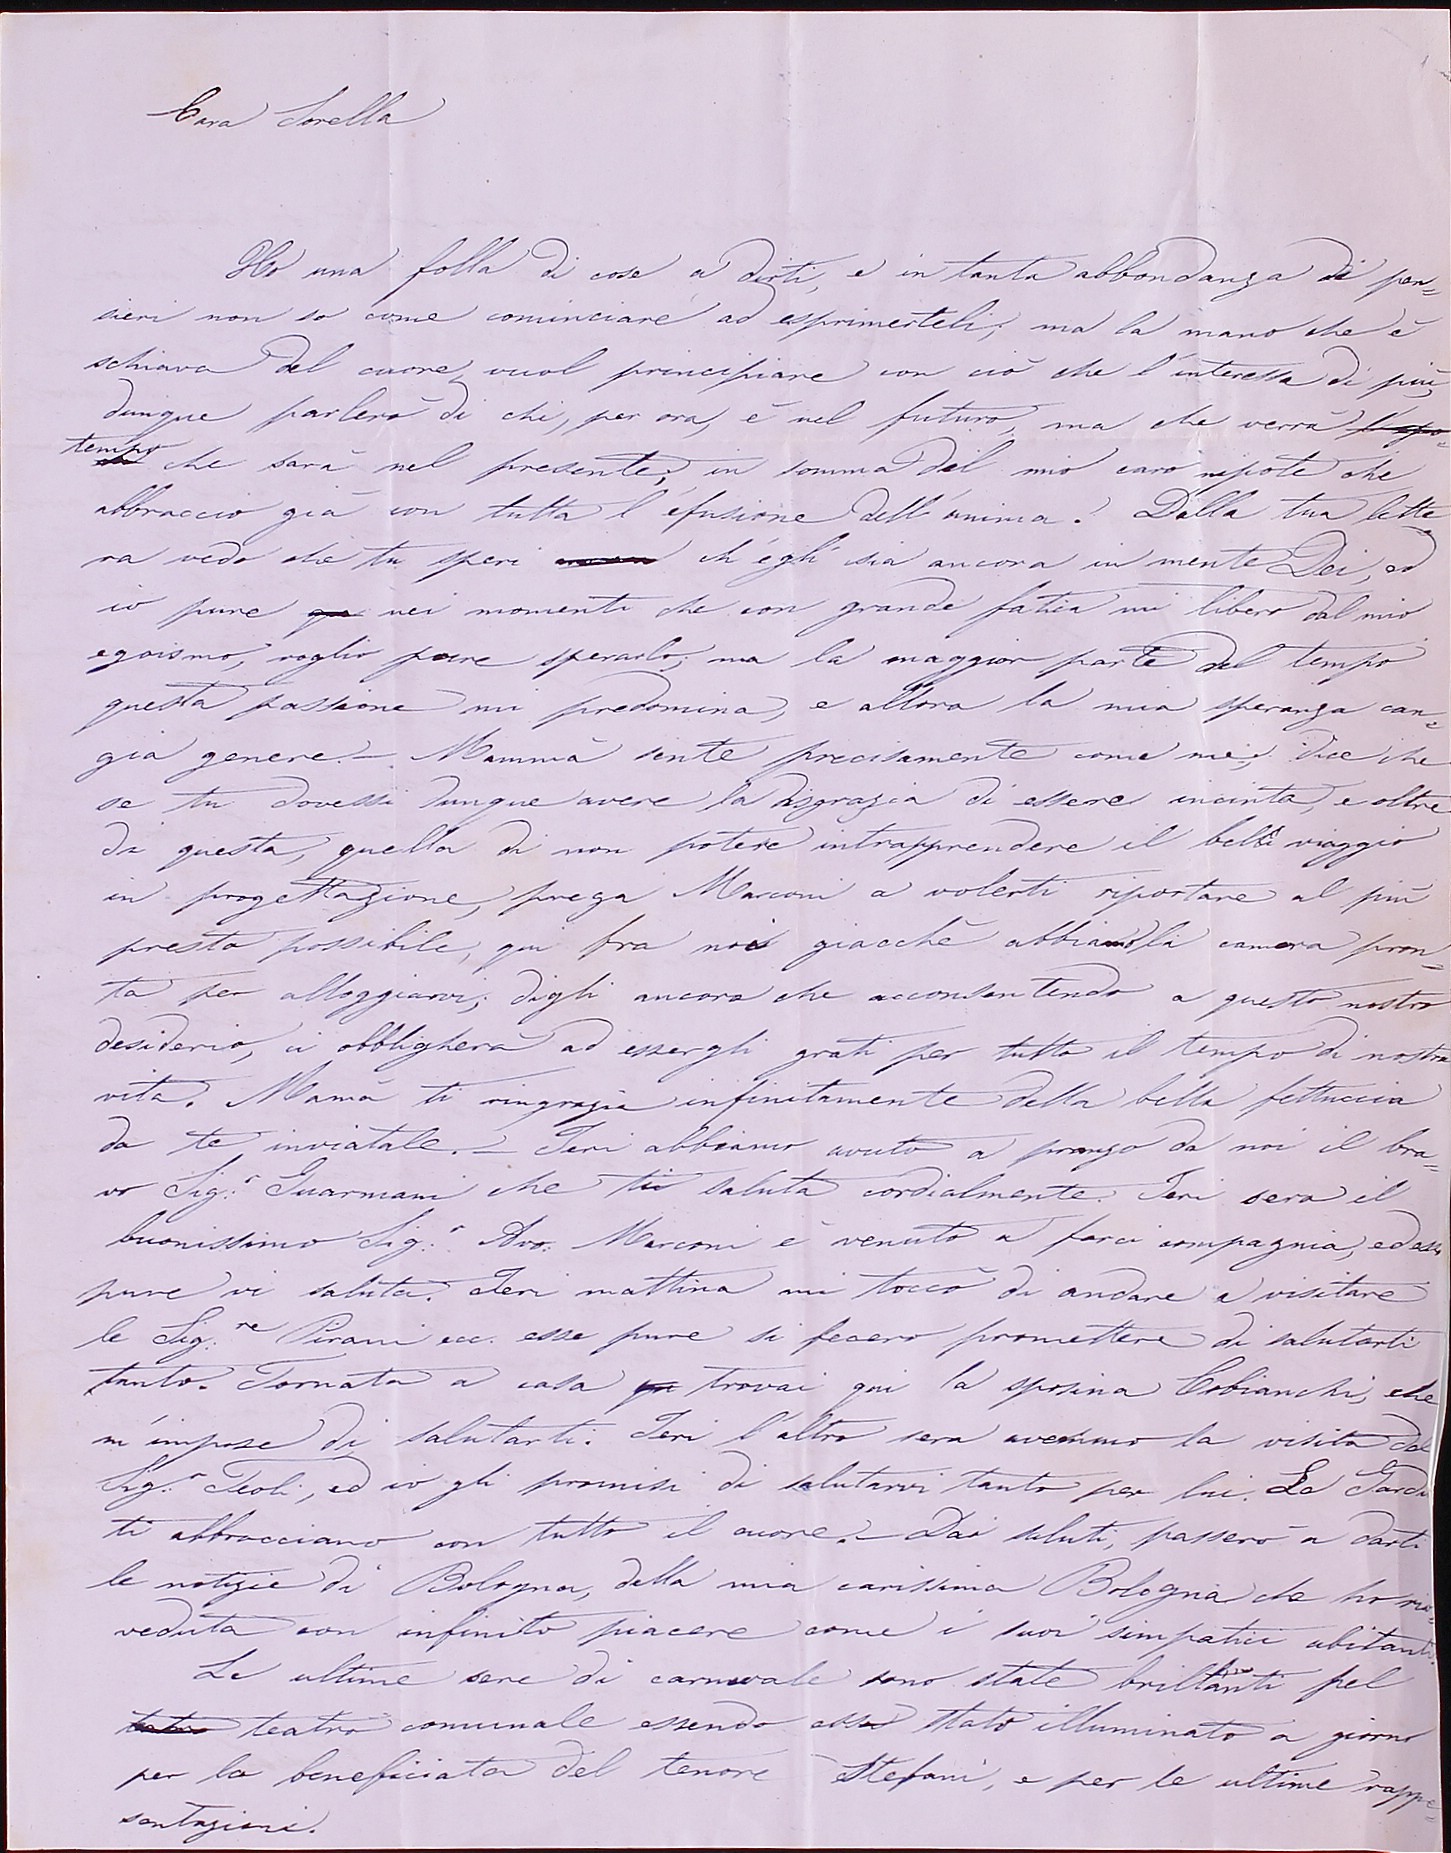 Cara Sorella
Ho una folla di cose a dirti, e in tanta abbondanza di pen=
sieri non so come cominciare ad esprimerteli; ma la mano che è
schiava del cuore, vuol principiare con ciò che l'interessa di più,
dunque parlerò di chi, per ora, è nel futuro, ma che verrà
tempo che sarà nel presente; in somma del mio caro nipote che
abbraccio già con tutta l'efusione dell'anima. Dalla tua lette=
ra vedo che tu speri ch'egli sia ancora in mente Dei, ed
io pure nei momenti che con grande fatica mi libero dal mio
egoismo, voglio pure sperarlo; ma la maggior parte del tempo
questa passione mi predomina, e allora la mia speranza can=
gia genere. — Mammà sente precisamente come me; dice che
se tu dovessi dunque avere la disgrazia di essere incinta, e oltre
di questa, quella di non potere intrapprendere il bell viaggio
in progettazione, prega Marconi a volerti riportare al più
presto possibile, qui fra noi giacchè abbiamo la camera pron=
ta per alloggiarvi; digli ancora che acconsentendo a questo nostro
desiderio, ci obbligherà ad essergli grati per tutto il tempo di nostra
vita. Mamà ti ringrazia infinitamente della bella fettuccia
da te inviatale. — Jeri abbiamo avuto a pranzo da noi il bra=
vo Sig.r Guarmani che ti saluta cordialmente. Jeri sera il
buonissimo Sig.r Avv. Marconi è venuto a farci compagnia, ed esso
pure vi saluta. Jeri mattina mi toccò di andare a visitare
le Sig.re Pirani ecc. esse pure si fecero promettere di salutarti
tanto. Tornata a casa trovai qui la sposina Cobianchi, che
m'impose di salutarti. Jeri l'altro sera avemmo la visita del
Sig.r Feoli, ed io gli promisi di salutarvi tanto per lui. Le
ti abbracciano con tutto il cuore. — Dai saluti, passerò a darti
le notizie di Bologna, della mia carissima Bologna che ho ri=
veduta con infinito piacere come i suoi simpatici abitanti.
Le ultime sere di carnevale sono state brillanti pel
teatro comunale essendo esso stato illuminato a giorno
per la beneficiata del tenore Stefani, e per le ultime rappre=
sentazioni.